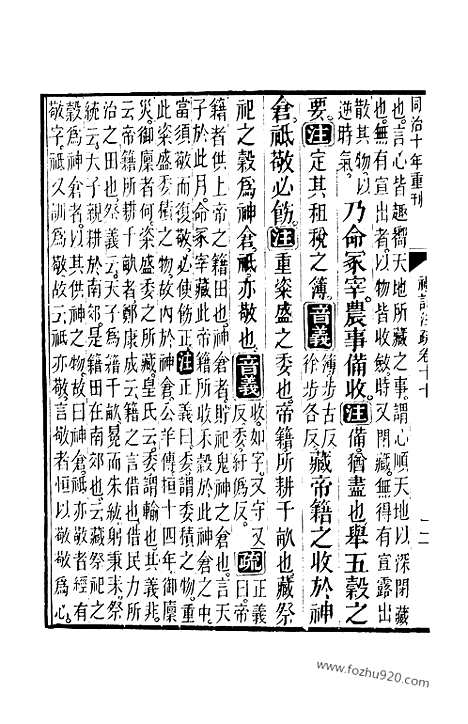 同治十年重刊
禮記注疏卷十七
也言心皆趣嚮天地所藏之事謂心順天地以深閉藏
也無有宣出者以物皆收斂時又閉藏無得有宣露出
散其物以
逆時氣
乃命冢宰農事備收注備猶盡也舉五穀之
要注定其租稅之簿音義簿步古反
徐步各反藏帝籍之收於神
倉祗敬必飭注重粢盛之委也帝籍所耕千畝也藏祭
祀之穀為神倉祗亦敬也音義收如字又守又
反委紆為反疏正義
曰帝
籍者供上帝之籍田也神倉者貯祀鬼神之倉也言天
子於此月命冢宰藏此帝籍所收禾穀於此神倉之中
當須敬而復敬必使飭正注正義曰委謂委積之物重
此粢盛委積之物故內於神倉公羊傳桓十四年御廩
災御廩者何粢盛委之所藏皇氏云委謂輸也其義非
云帝籍所耕千畝者鄭康成云籍之言借也借民力所
治之田也祭義云天子為籍千畝冕而朱紘躬秉耒祭
統云天子親耕於南郊是籍田在南郊也云藏祭祀之
穀為神倉者以其供神之物故曰神倉祗亦敬者經有
敬字祗又訓為敬故云祗亦敬言敬者恒以敬敬為心
https://www.fozhu920.com/